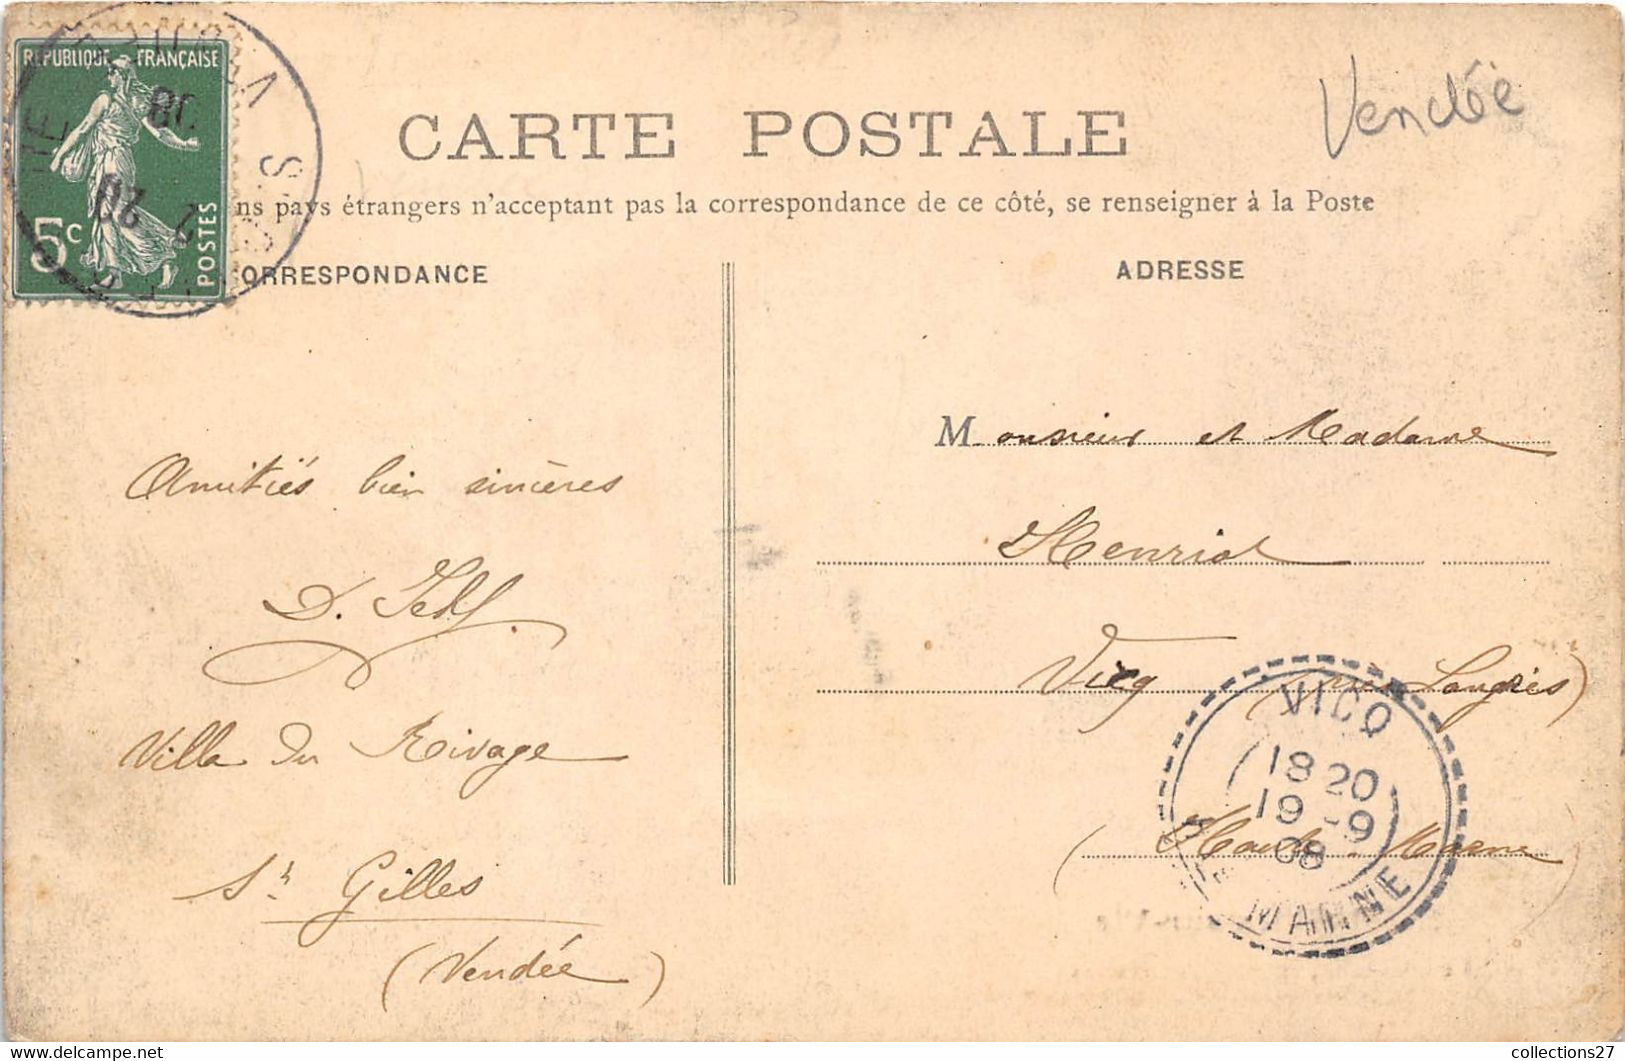 RÉPUBLIQUE FRANÇAISE
5c
POSTES
08
Vendée
CARTE POSTALE
ns pays étrangers n'acceptant pas la correspondance de ce côté, se renseigner à la Poste
ORRESPONDANCE
ADRESSE
Amitiés bien sincères
D.
Villa du Rivage
St Gilles
(Vendée)
Monsieur et Madame
Henriot
Vicq (près Langres)
(Haute-Marne
VICQ
18 20
19 -9
08
MARNE
collections27